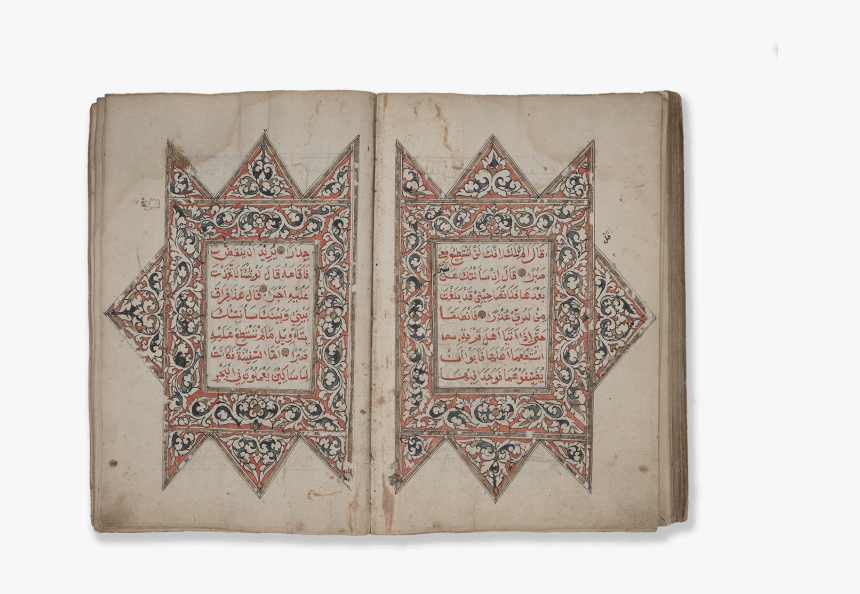 قَالَ اِنَّكَ لَنْ تَسْتَطِيْعَ مَعِيَ
صَبْرًا قَالَ اِنْ سَاَلْتُكَ عَنْ
بَعْدَهَا فَلَا تُصَاحِبْنِيْ قَدْ بَلَغْتَ
مِنْ لَدُنِّيْ عُذْرًا فَانْطَلَقَا
حَتّٰى اِذَا اَتَيَا اَهْلَ قَرْيَةٍ
اسْتَطْعَمَا اَهْلَهَا فَاَبَوْا اَنْ
يُضَيِّفُوْهُمَا فَوَجَدَا فِيْهَا
جِدَارًا يُرِيْدُ اَنْ يَنْقَضَّ
فَاَقَامَهُ قَالَ لَوْ شِئْتَ لَتَّخَذْتَ
عَلَيْهِ اَجْرًا قَالَ هٰذَا فِرَاقُ
بَيْنِيْ وَبَيْنِكَ سَاُنَبِّئُكَ
بِتَاْوِيْلِ مَا لَمْ تَسْتَطِعْ عَلَيْهِ
صَبْرًا اَمَّا السَّفِيْنَةُ فَكَانَتْ
لِمَسَاكِيْنَ يَعْمَلُوْنَ فِى الْبَحْرِ